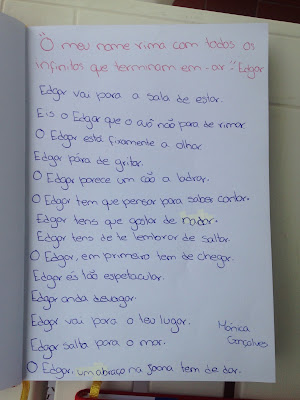 "O meu nome rima com todos os
infinitos que terminam em -ar": Edgar
Edgar vai para a sala de estar.
Eis o Edgar que o avô não para de rimar.
O Edgar está fixamente a olhar
Edgar pára de gritar.
O Edgar parece um cão a ladrar.
O Edgar tem que pensar para saber contar.
Edgar tens que gostar de nadar.
Edgar tens de te lembrar de saltar.
O Edgar, em primeiro tem de chegar.
Edgar és tão espetacular.
Edgar anda devagar.
Edgar vai para o teu lugar.
Edgar salta para o mar.
O Edgar, um abraço na Joana tem de dar.
Mónica
Gonçalves